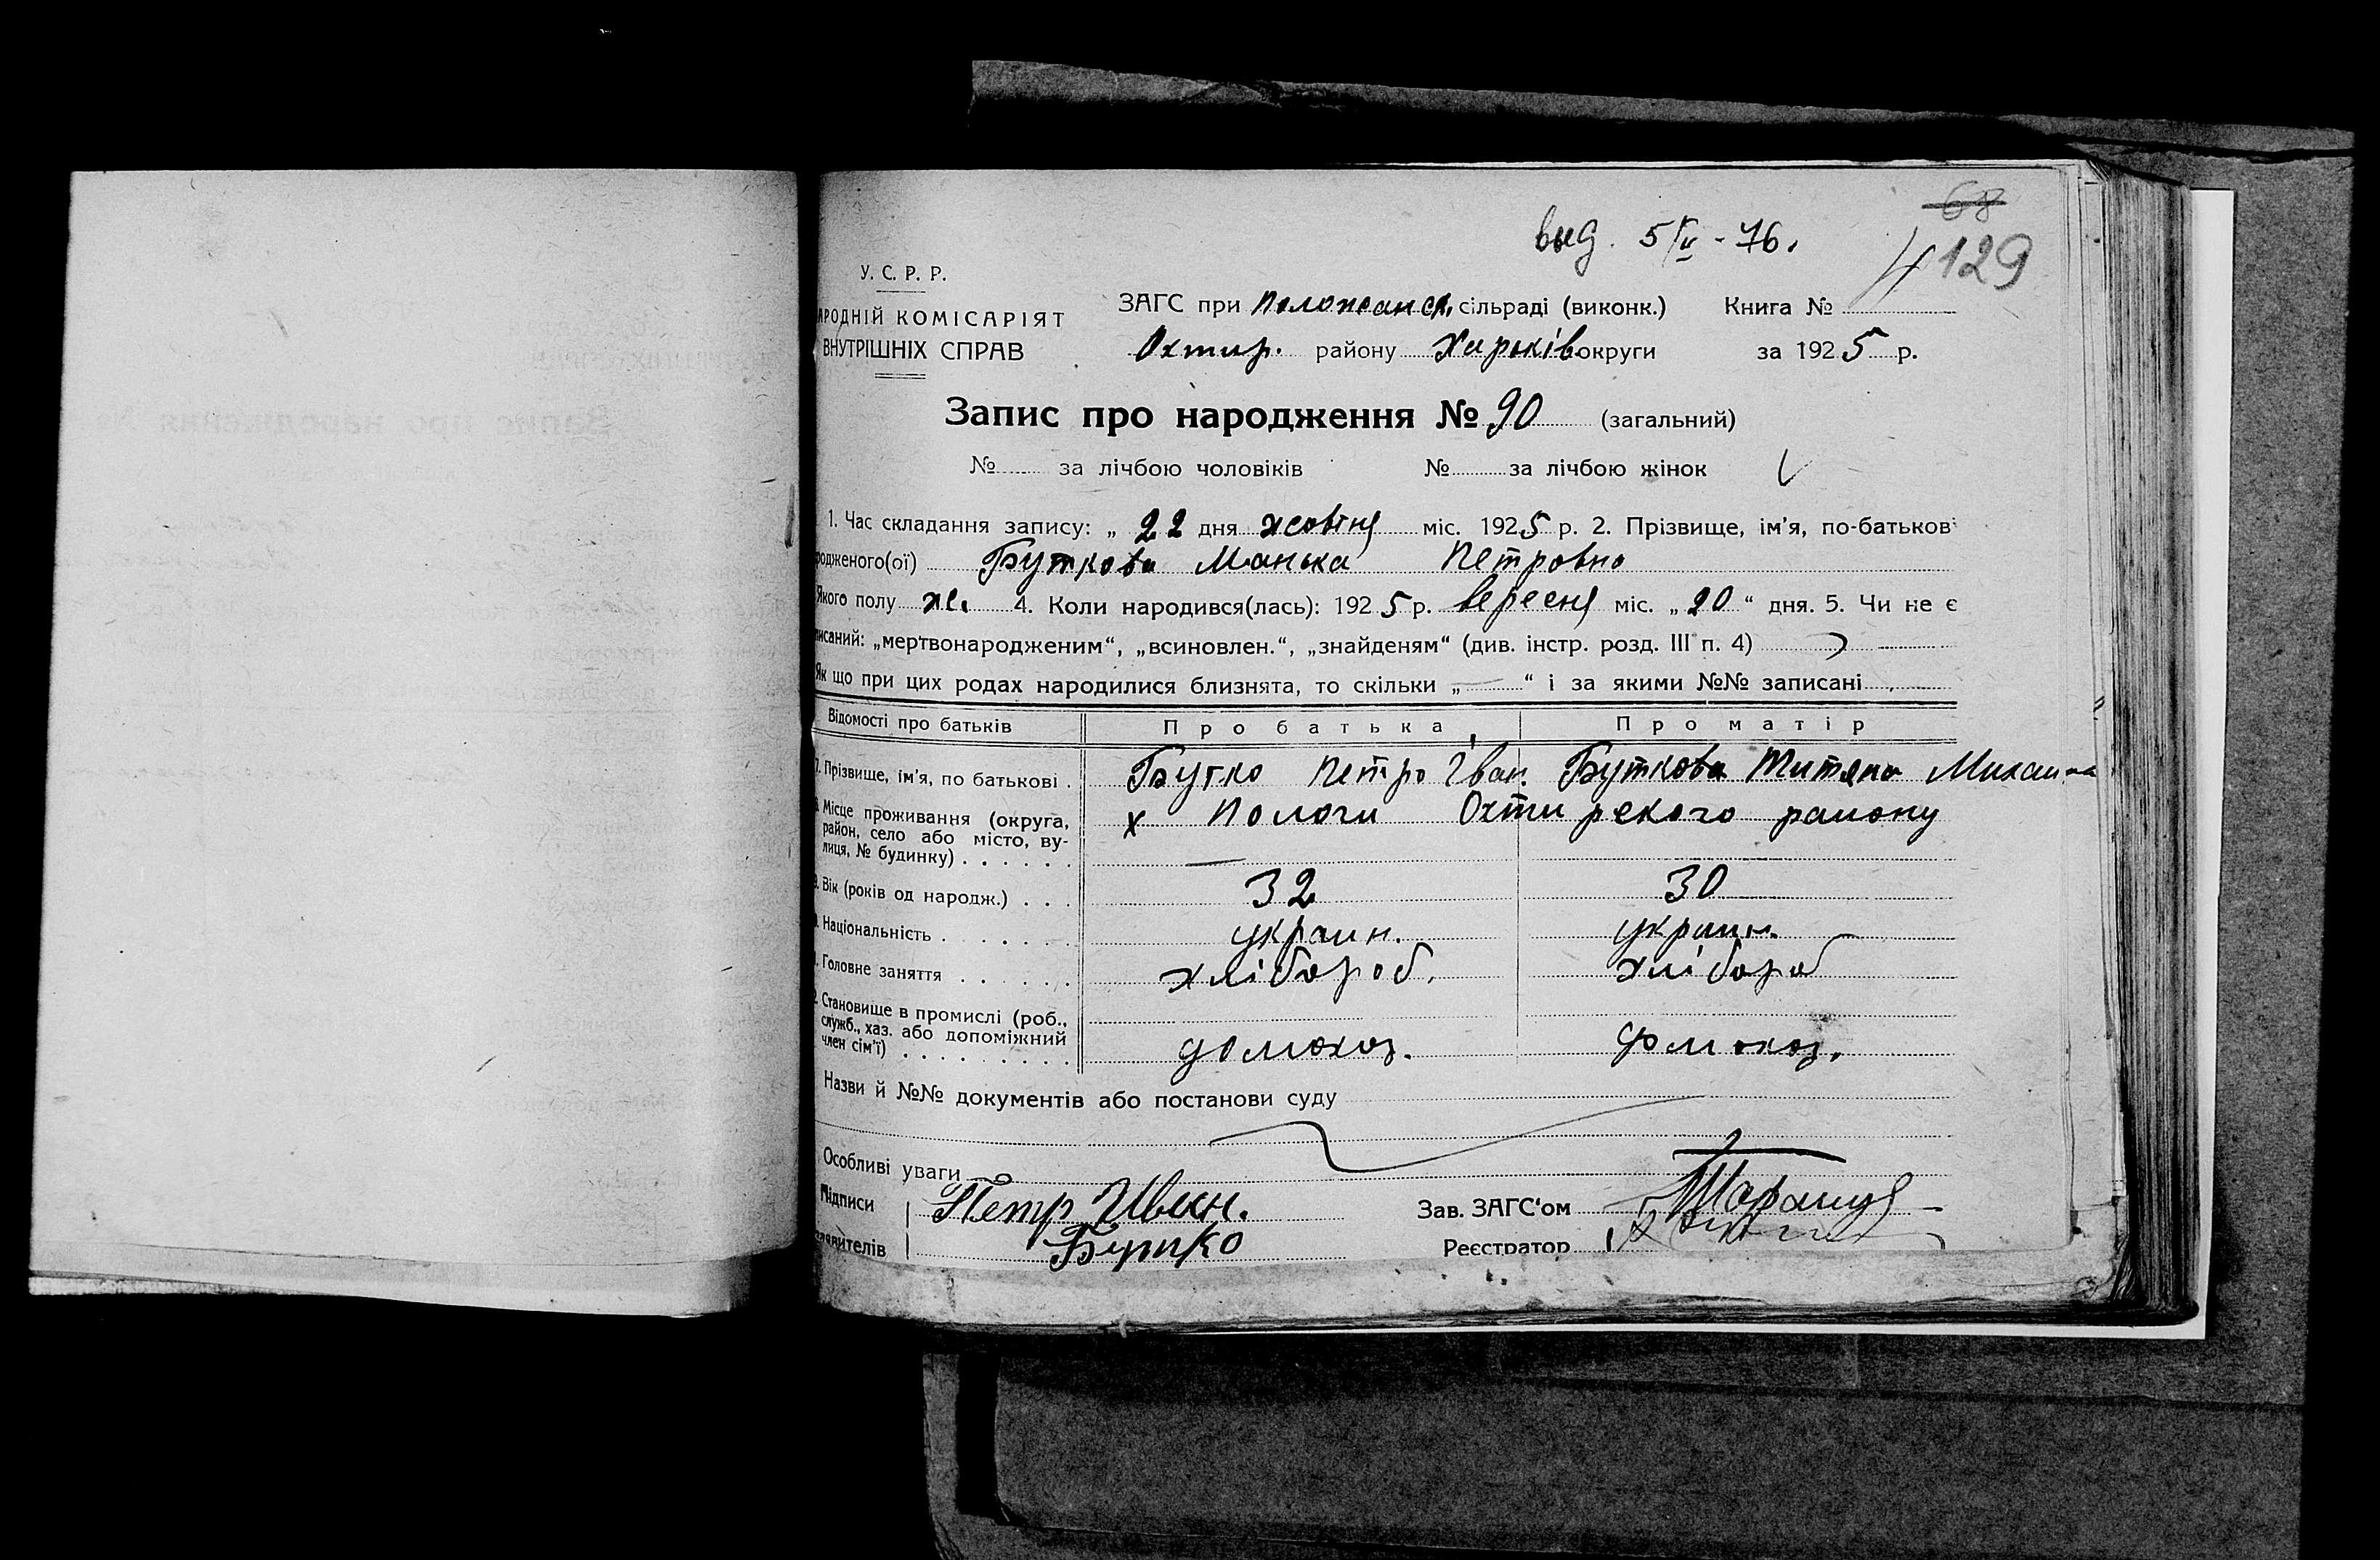 68
выд. 5/IV - 76.
129
У. С. Р. Р.
АРОДНІЙ КОМІСАРІЯТ
ВНУТРІШНІХ СПРАВ
ЗАГС при Положанск. сільраді (виконк.) Книга №
Охтир. району Харьків округи за 1925 р.
Запис про народження № 90 (загальний)
№ за лічбою чоловіків № за лічбою жінок
1. Час складання запису: „ 22 дня жовтня міс. 1925 р. 2. Прізвище, ім'я, по-батьков
родженого(ої) Буткова Манька Петровна
Якого полу ж. 4. Коли народився(лась): 1925 р. вересня міс. „20“ дня. 5. Чи не є
писаний: „мертвонародженим“, „всиновлен.“, „знайденям“ (див. інстр. розд. III п. 4)
Як що при цих родах народилися близнята, то скільки „ — “ і за якими №№ записані
Відомості про батьків Про батька Про матір
7. Прізвище, ім'я, по батькові . Бутко Петро Іван. Буткова Титяна Михаи
Місце проживання (округа, х Пологи Охтирского району
район, село або місто, ву-
лиця, № будинку) . . . . . . —
Вік (років од народж.) . . . 32 30
Національність . . . . . . . украин. украин.
Головне заняття . . . . . . хлібороб. хлібороб
Становище в промислі (роб.,
служб., хаз. або допоміжний
член сім'ї) . . . . . . . . . домохоз. домохоз.
Назви й №№ документів або постанови суду
Особливі уваги
Підписи Петр Иван. Зав. ЗАГС'ом
заявителів Бутко Реєстратор